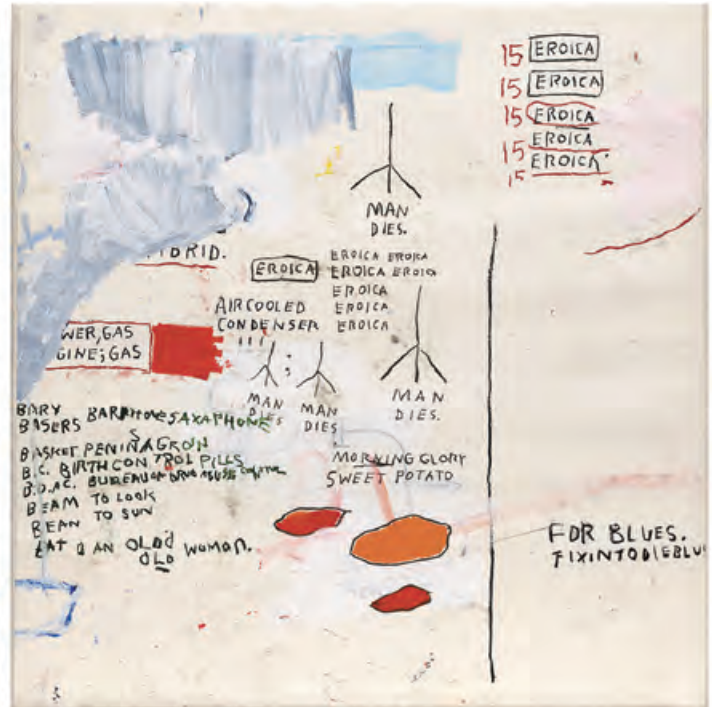 15 EROICA
15 EROICA
15 EROICA
15 EROICA
15 EROICA
MAN
DIES.
BRID.
EROICA
EROICA EROICA
EROICA EROICA
EROICA
EROICA
EROICA
AIRCOOLED
CONDENSER
WER, GAS
GINE; GAS
MAN
DIES
MAN
DIES
MAN
DIES.
BARY
BASERS
BARITONE SAXAPHONE
BASKET PENINAGROIN
B.C. BIRTH CONTROL PILLS
B.D.A.C. BUREAU OF DRUG ABUSE CONTROL
BEAM TO LOOK
BEAN TO SUN
EAT AN OLD
OLD WOMAN.
MORNING GLORY
SWEET POTATO
FOR BLUES.
FIXINTODIEBLU